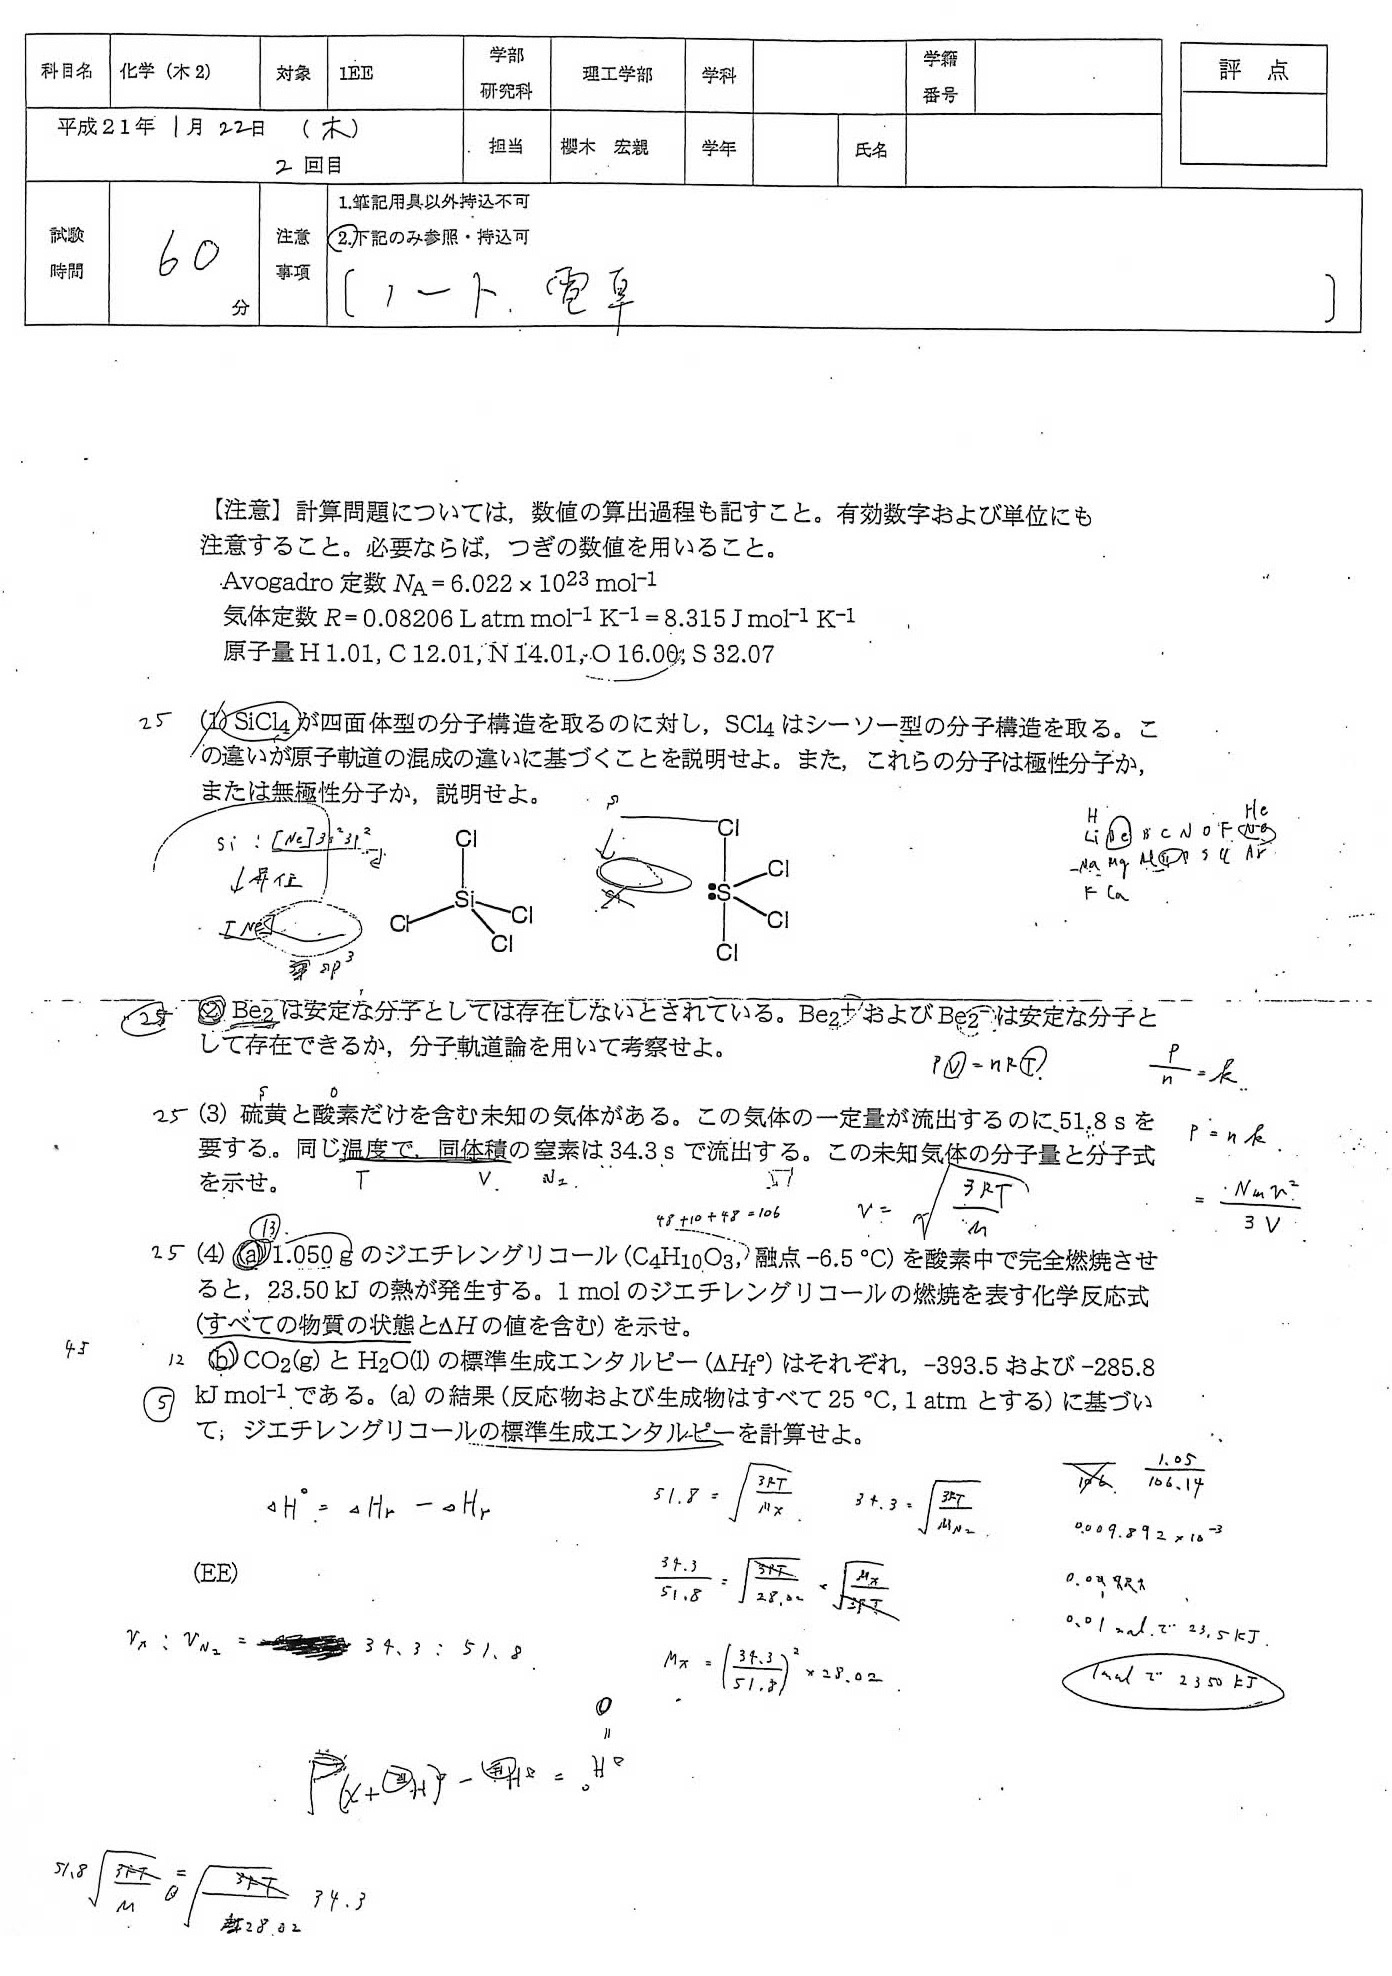 科目名 化学（木2） 対象 1EE 学部研究科 理工学部 学科 学籍番号 評点
平成21年 1月 22日 (木)
2 回目
担当 櫻木 宏親 学年 氏名
試験時間 60 分
注意事項
1.筆記用具以外持込不可
2.下記のみ参照・持込可
[ノート、電卓]
【注意】計算問題については，数値の算出過程も記すこと。有効数字および単位にも
注意すること。必要ならば，つぎの数値を用いること。
Avogadro 定数 NA = 6.022 × 10²³ mol⁻¹
気体定数 R = 0.08206 L atm mol⁻¹ K⁻¹ = 8.315 J mol⁻¹ K⁻¹
原子量 H 1.01, C 12.01, N 14.01, O 16.00, S 32.07
25 (1) SiCl₄が四面体型の分子構造を取るのに対し，SCl₄はシーソー型の分子構造を取る。こ
の違いが原子軌道の混成の違いに基づくことを説明せよ。また，これらの分子は極性分子か，
または無極性分子か，説明せよ。
Si : [Ne]3s²3p²
↓昇位
[Ne]
sp³
Cl
Si
Cl Cl
Cl
Cl
Cl
:S
Cl
Cl
H He
Li Be B C N O F Ne
Na Mg Al Si P S Cl Ar
K Ca
25 (2) Be₂は安定な分子としては存在しないとされている。Be₂⁺およびBe₂⁻は安定な分子と
して存在できるか，分子軌道論を用いて考察せよ。
PV = nRT
P/n = k
S O
25 (3) 硫黄と酸素だけを含む未知の気体がある。この気体の一定量が流出するのに 51.8 s を
要する。同じ温度で，同体積の窒素は 34.3 s で流出する。この未知気体の分子量と分子式
を示せ。
P = nk
T V N₂
v = √(3RT/M)
= Nmv²/3V
48+10+48=106
13
25 (4) (a) 1.050 g のジエチレングリコール (C₄H₁₀O₃, 融点 -6.5 °C) を酸素中で完全燃焼させ
ると，23.50 kJ の熱が発生する。1 mol のジエチレングリコールの燃焼を表す化学反応式
(すべての物質の状態とΔH の値を含む) を示せ。
45
12 (b) CO₂(g) と H₂O(l) の標準生成エンタルピー (ΔHf°) はそれぞれ，-393.5 および -285.8
5 kJ mol⁻¹ である。(a) の結果 (反応物および生成物はすべて 25 °C, 1 atm とする) に基づい
て，ジエチレングリコールの標準生成エンタルピーを計算せよ。
ΔH° = ΔHr - ΔHr
51.8 = √(3RT/Mx)
34.3 = √(3RT/MN₂)
1.05/106.14
0.009.892×10⁻³
(EE)
34.3/51.8 = √(3RT/28.02) × √(Mx/3RT)
0.01 mol で 23.5 kJ.
vx : vN₂ = 34.3 : 51.8
Mx = (34.3/51.8)² × 28.02
1mol で 2350 kJ
51.8 √(3RT/M) = √(3RT/28.02) 34.3